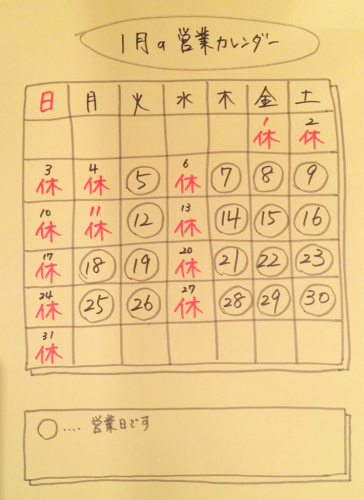 1月の営業カレンダー
日 月 火 水 木 金 土
1 2
休 休
3 4 5 6 7 8 9
休 休 休
10 11 12 13 14 15 16
休 休 休
17 18 19 20 21 22 23
休 休
24 25 26 27 28 29 30
休 休
31
休
○.... 営業日です